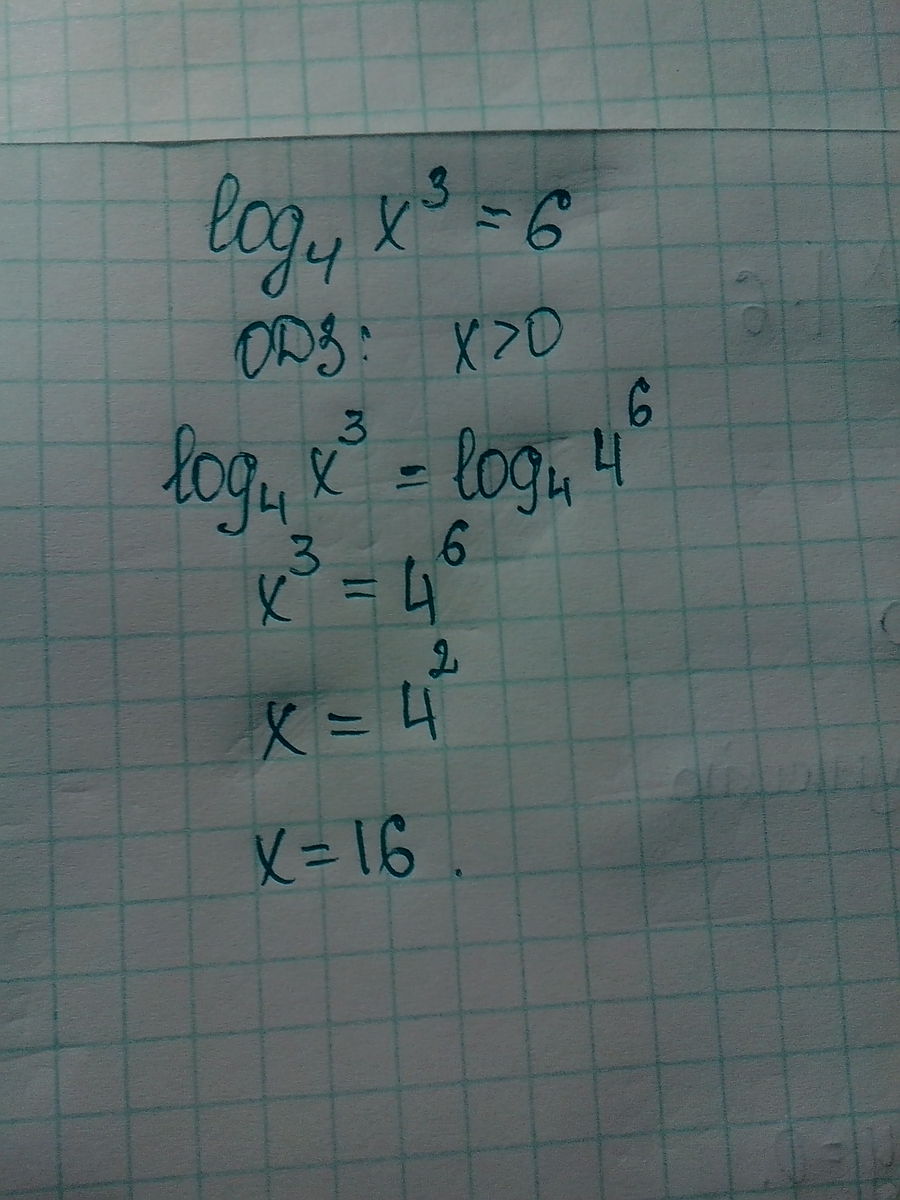 log₄ x³ = 6
ОДЗ: x>0
log₄ x³ = log₄ 4⁶
x³ = 4⁶
x = 4²
x = 16.